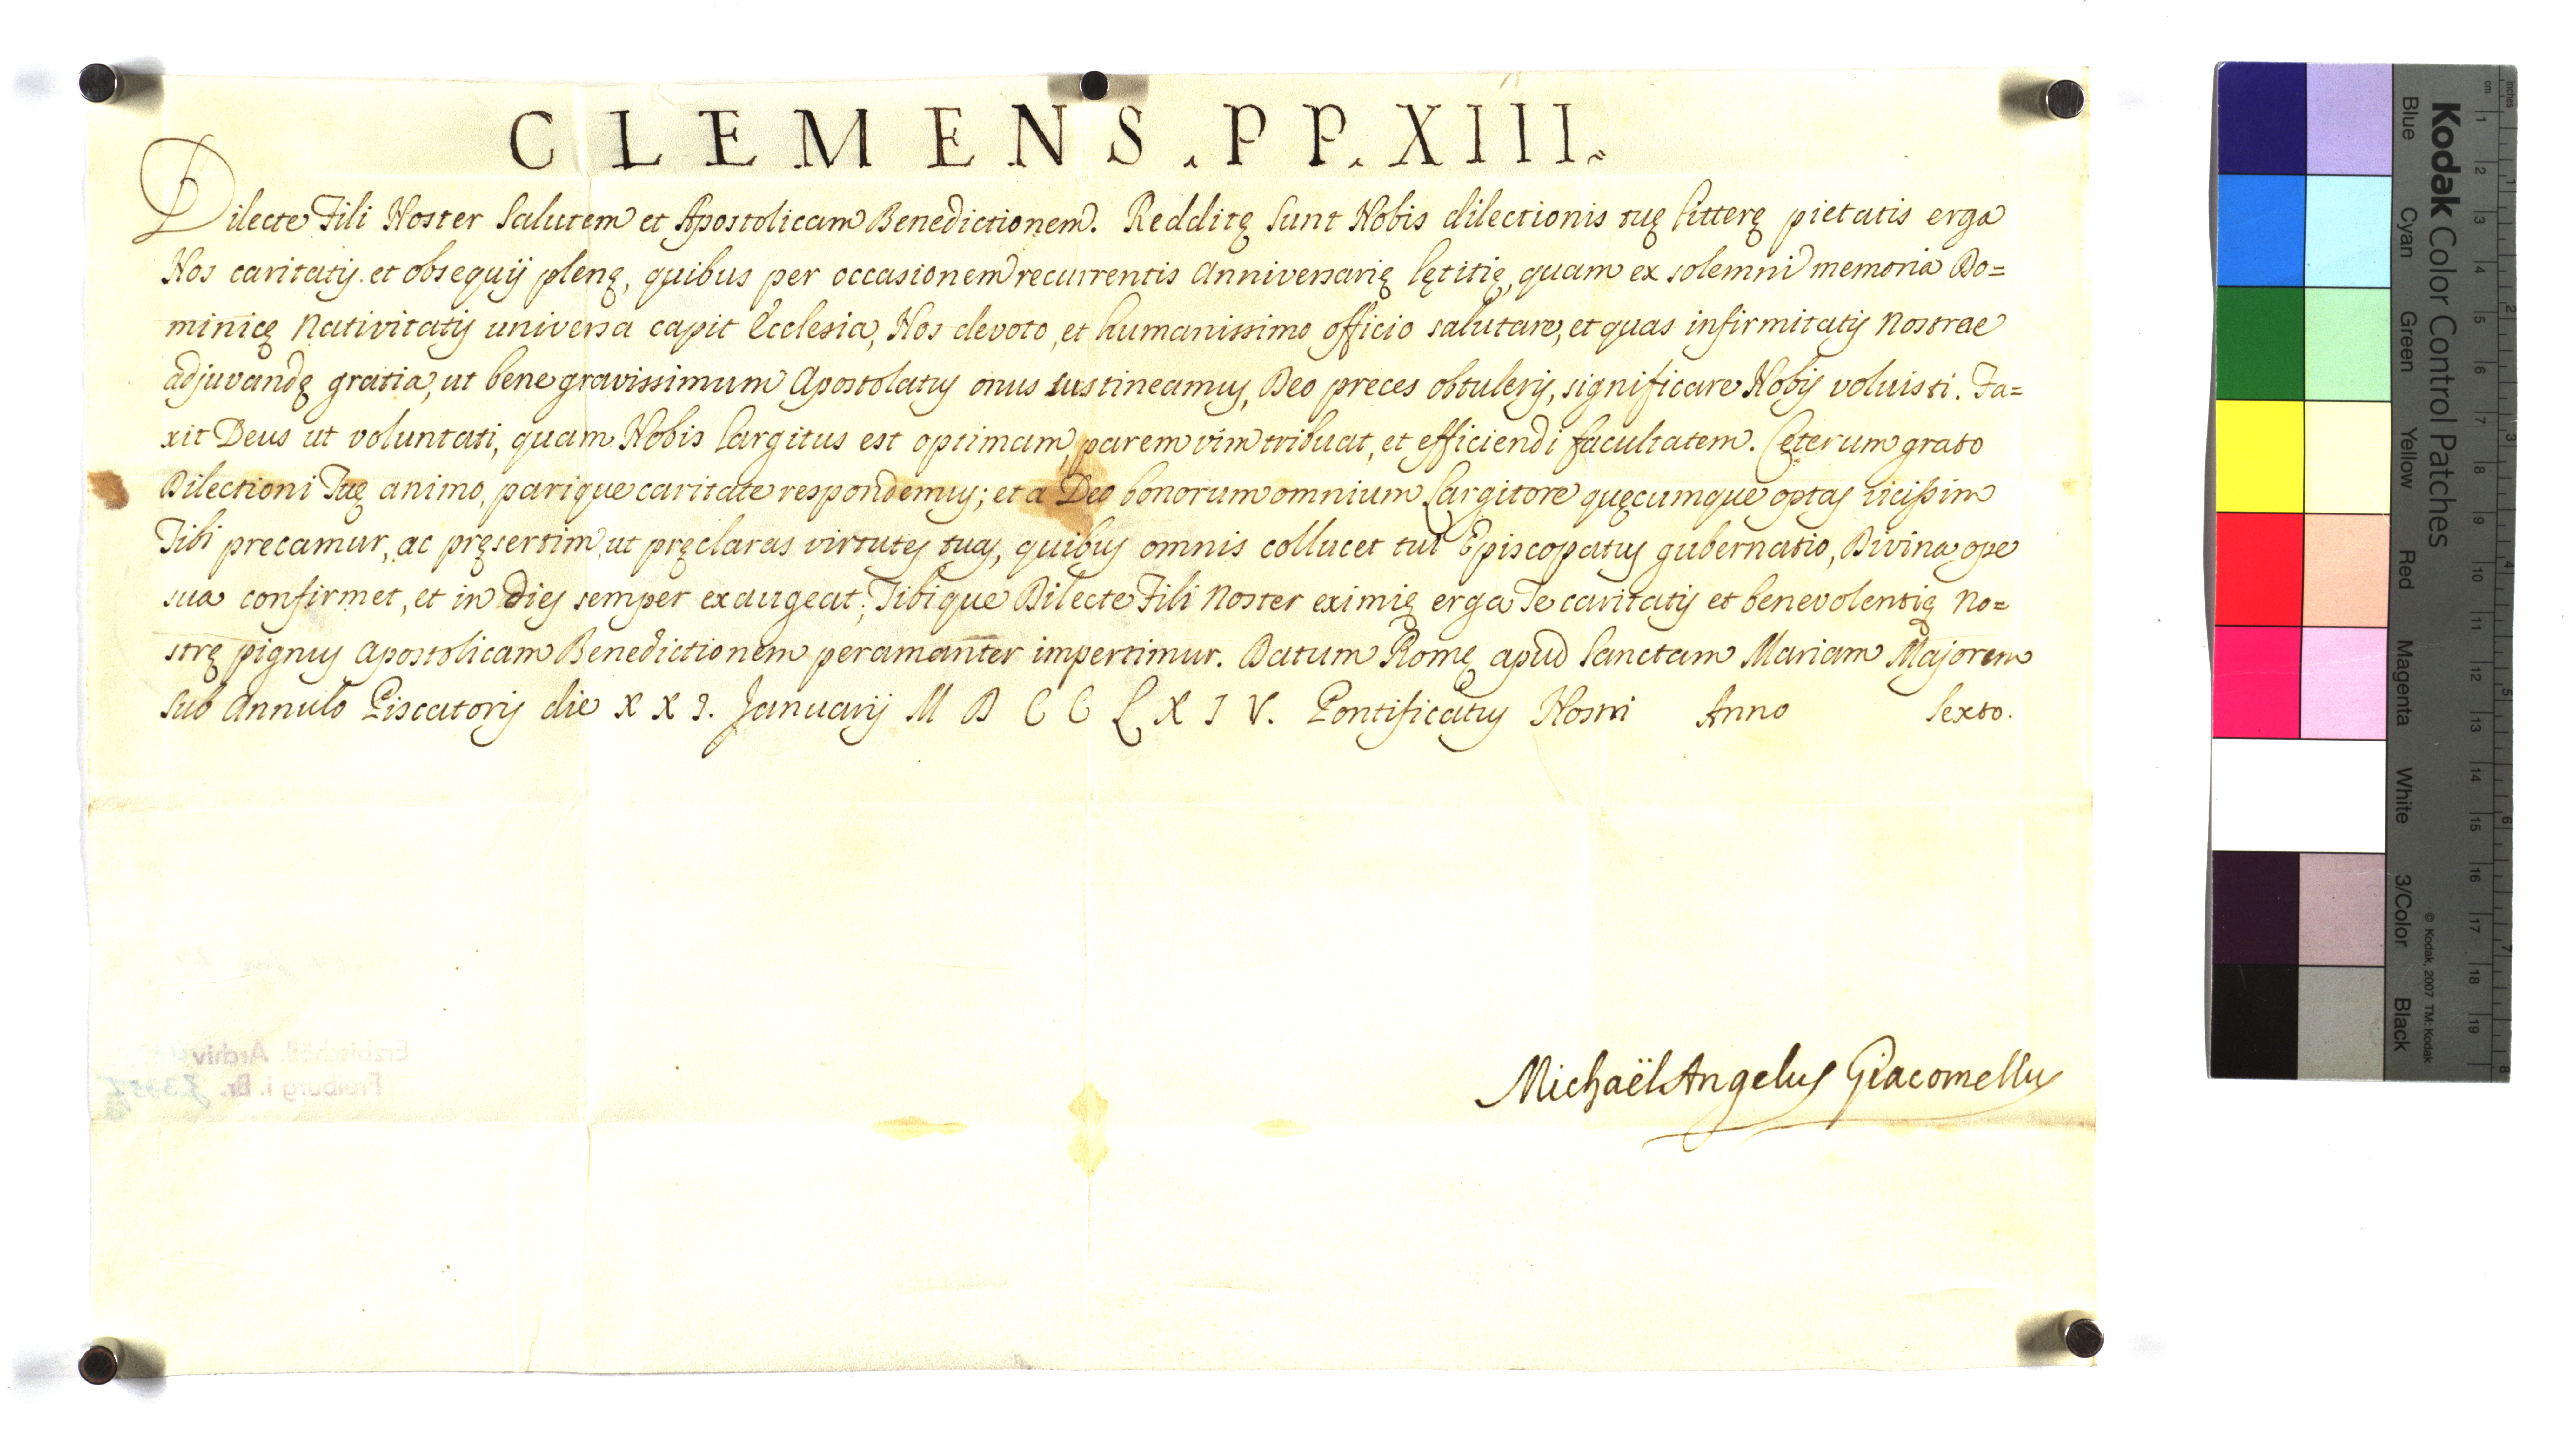 CLEMENS . PP. XIII.
Dilecte Fili Noster Salutem et Apostolicam Benedictionem. Redditę sunt Nobis dilectionis tuę litterę pietatis erga
Nos caritatis et obsequij plenę, quibus per occasionem recurrentis Anniversarię lętitię, quam ex solemni memoria Do=
minicę Nativitatis universa capit Ecclesia, Nos devoto, et humanissimo officio salutare, et quas infirmitatis Nostrae
adjuvandę gratia, ut bene gravissimum Apostolatus onus sustineamus, Deo preces obtuleris, significare Nobis voluisti. Fa=
xit Deus ut voluntati, quam Nobis largitus est optimam, parem vim tribuat, et efficiendi facultatem. Cęterum grato
Dilectioni Tuę animo, parique caritate respondemus; et a Deo bonorum omnium Largitore quęcumque optas vicissim
Tibi precamur, ac pręsertim, ut pręclaras virtutes tuas, quibus omnis collucet tui Episcopatus gubernatio, Divina ope
sua confirmet, et in dies semper exaugeat; Tibique Dilecte Fili Noster eximię erga Te caritatis et benevolentię No=
strę pignus Apostolicam Benedictionem peramanter impertimur. Datum Romę apud Sanctam Mariam Majorem
Sub Annulo Piscatoris die XXI. Januarij MDCCLXIV. Pontificatus Nostri Anno Sexto.
Michaël Angelus Giacomellus
Erzbischöfl. Archiv
Freiburg i. Br.
Kodak Color Control Patches
Blue Cyan Green Yellow Red Magenta White 3/Color Black
© Kodak, 2007 TM: Kodak
cm 1 2 3 4 5 6 7 8 9 10 11 12 13 14 15 16 17 18 19
inches 1 2 3 4 5 6 7 8